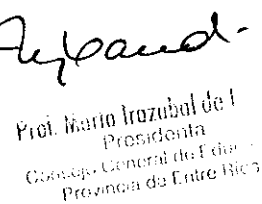 Prof. Marta Irazabal de L
Presidenta
Consejo General de Educ
Provincia de Entre Ríos